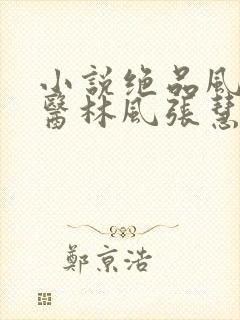 小說绝品風
醫林風张慧
鄭京浩